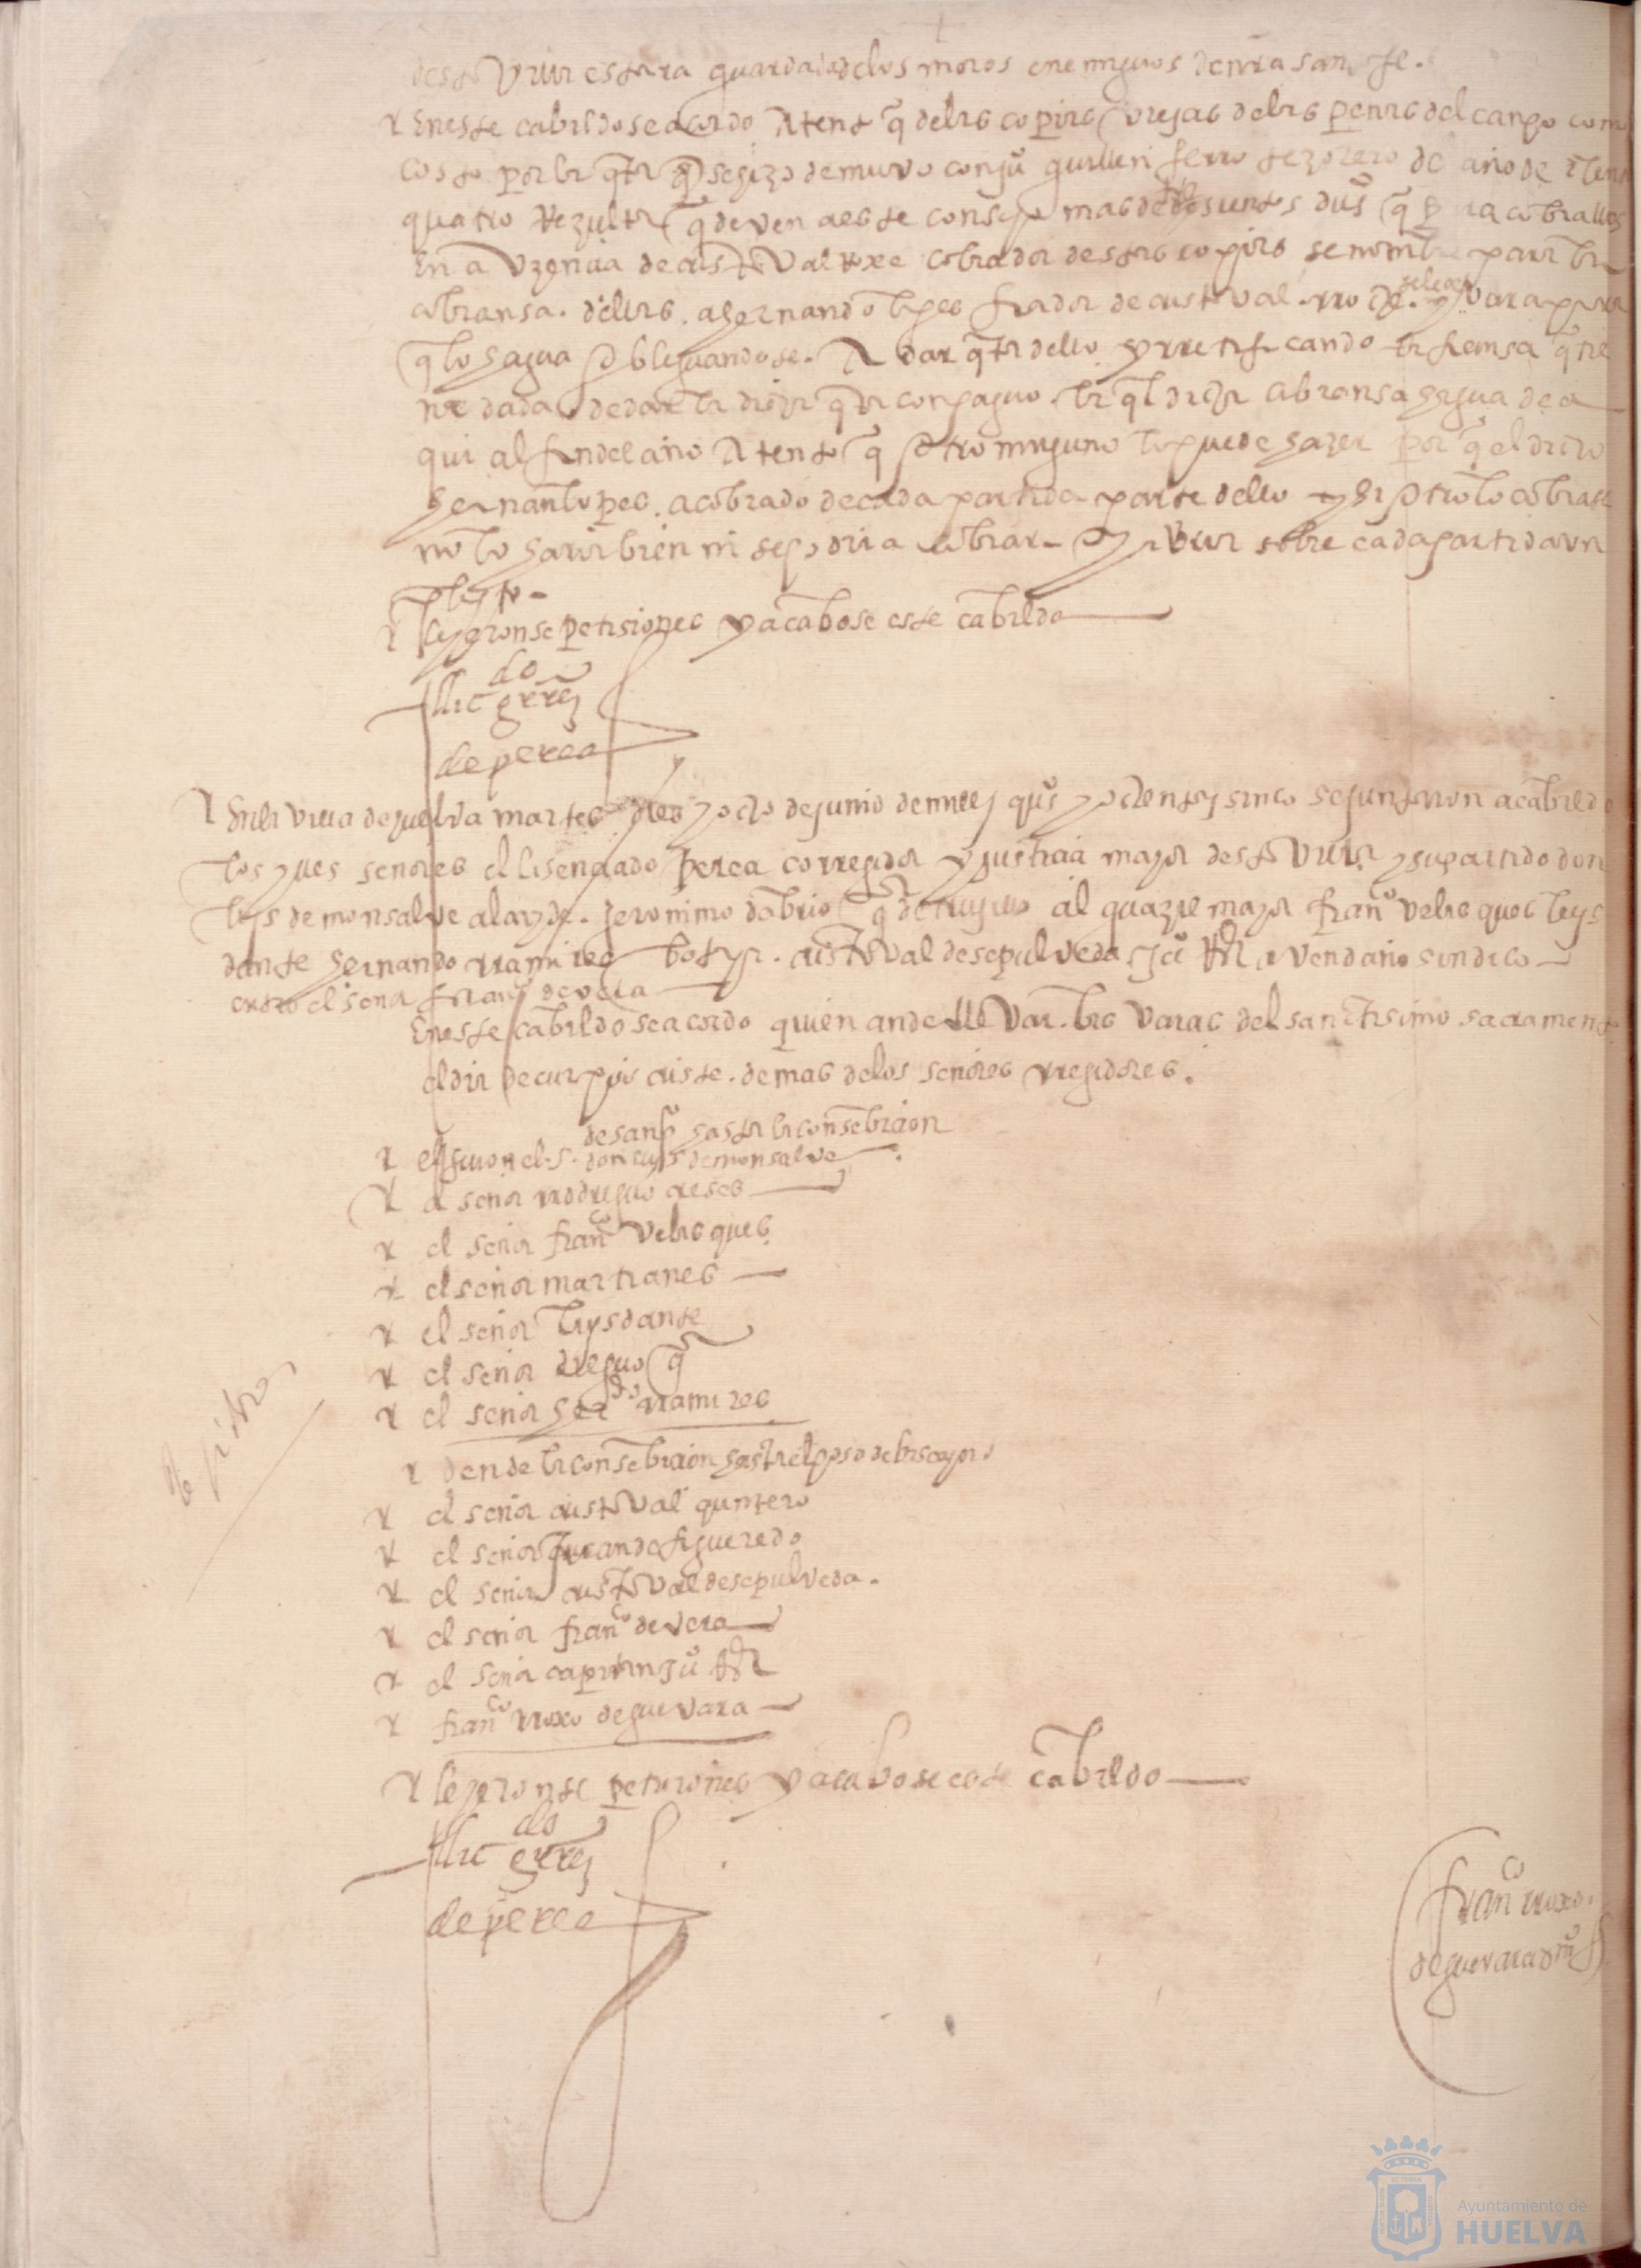 desta villa estara guardada de los moros enemiguos de nra santa fe.
En este cabildo se acordo Atento q̃ de las copias viejas de las penas del canpo com
costo por la qta q̃ se hizo de nuevo con juº guillen ferro tezorero de año de
quatro Rezulta q̃ deven a este consejo mas de dosientos dusº q̃ cobrallos
En avzencia de cristoval Roxe cobrador destas copias se nombre para la
cobransa. dellas. a hernando lopes fiador de cristoval
q̃ lo hagua obleguandose. A dar qta dello y rretificando la fiansa q̃ tie
ne dada de dar la dicha qta con paguo. la ql dicha cobransa hagua de a
qui al fin del año Atento q̃ otro ninguno lo puede hazer por q̃ el dicho
hernan lopes. a cobrado de cada partida parte dello y si otro lo cobrase
no lo haria bien ni se podria cobrar y avria sobre cada partida un
pleyto
leyeronse petisiones y acabose este cabildo
llicdo grrez
de perea
En la villa de huelva martes dies y ocho de junio de mill y quºs y ochenta y sinco se juntaron a cabildo
los yles señores el lisensiado perea corregidor y justicia mayor desta villa y su partido don
luys de monsalve alcayde. jeronimo dabrio q̃ de trugillo alguazil mayor franco velasques luys
dante hernando rramires cristoval de sepulveda juº avendaño sindico
entro el señor franco de vera
En este cabildo se acordo quien an de llevar. las varas del santisimo sacramento
el dia de corpus criste. demas de los señores rregidores.
de san po hasta la consebsion
el guion el s. don luys de monsalve
el señor rrodriguo creses
el señor franco velasques
el señor martianes
el señor luys dante
el señor dieguo q̃
el señor herdo rramires
dende la consebsion hasta el poso de la
el señor cristoval quintero
el señor juan de figueredo
el señor cristoval de sepulveda.
el señor franco de vera
el señor capitan juº
franco rroxo de guevara
leyeronse petisiones y acabose este cabildo
llicdo grrez
de perea
franco rroxo
de guevara
Ayuntamiento de
HUELVA